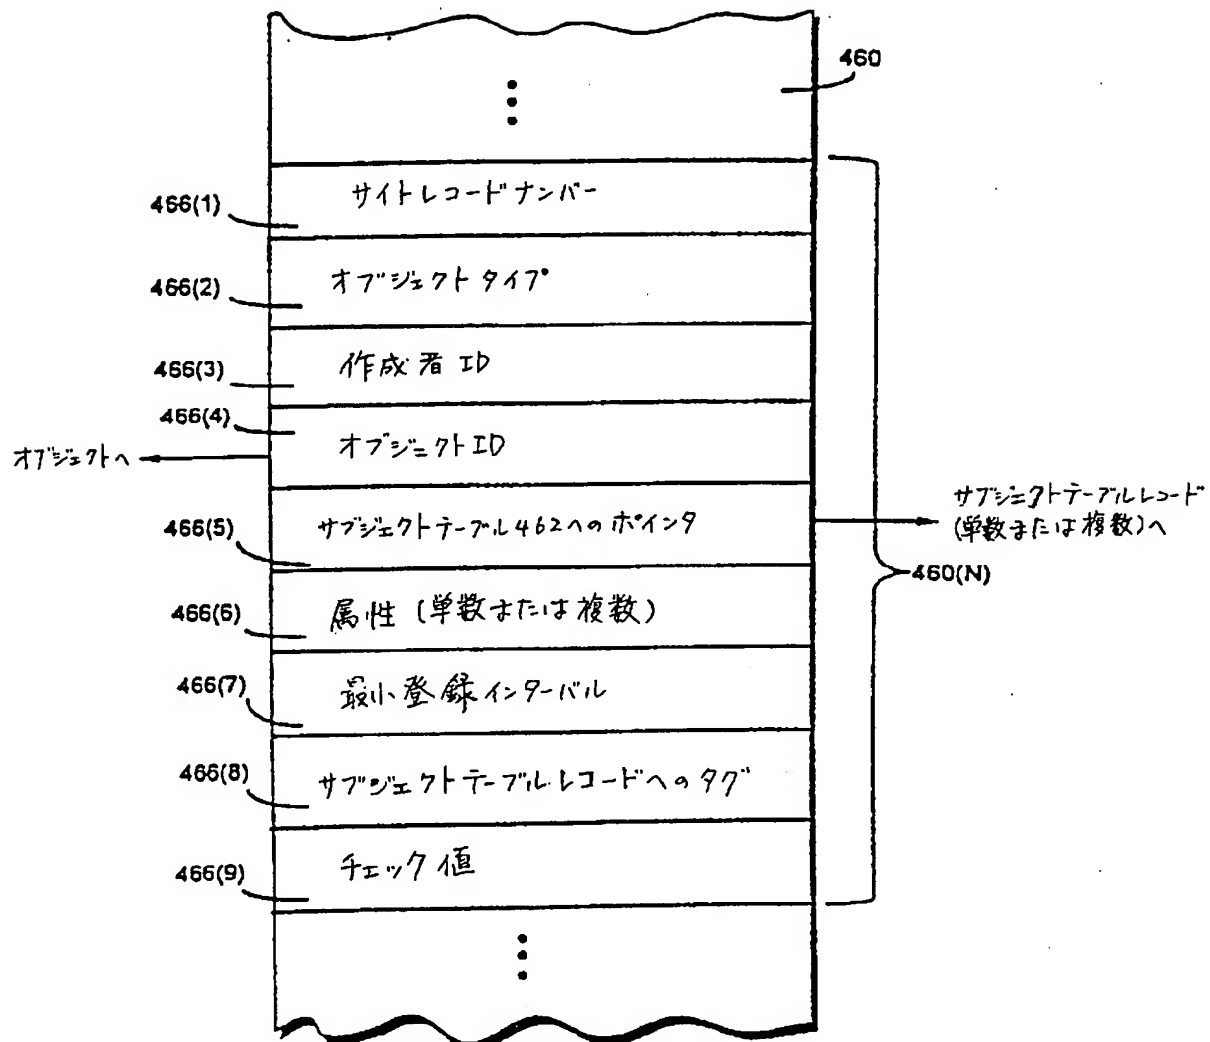 460
466(1)
サイトレコードナンバー
466(2)
オブジェクトタイプ
466(3)
作成者 ID
466(4)
オブジェクトID
オブジェクトへ
466(5)
サブジェクトテーブル462へのポインタ
サブジェクトテーブルレコード
(単数または複数)へ
460(N)
466(6)
属性(単数または複数)
466(7)
最小登録インターバル
466(8)
サブジェクトテーブルレコードへのタグ
466(9)
チェック値